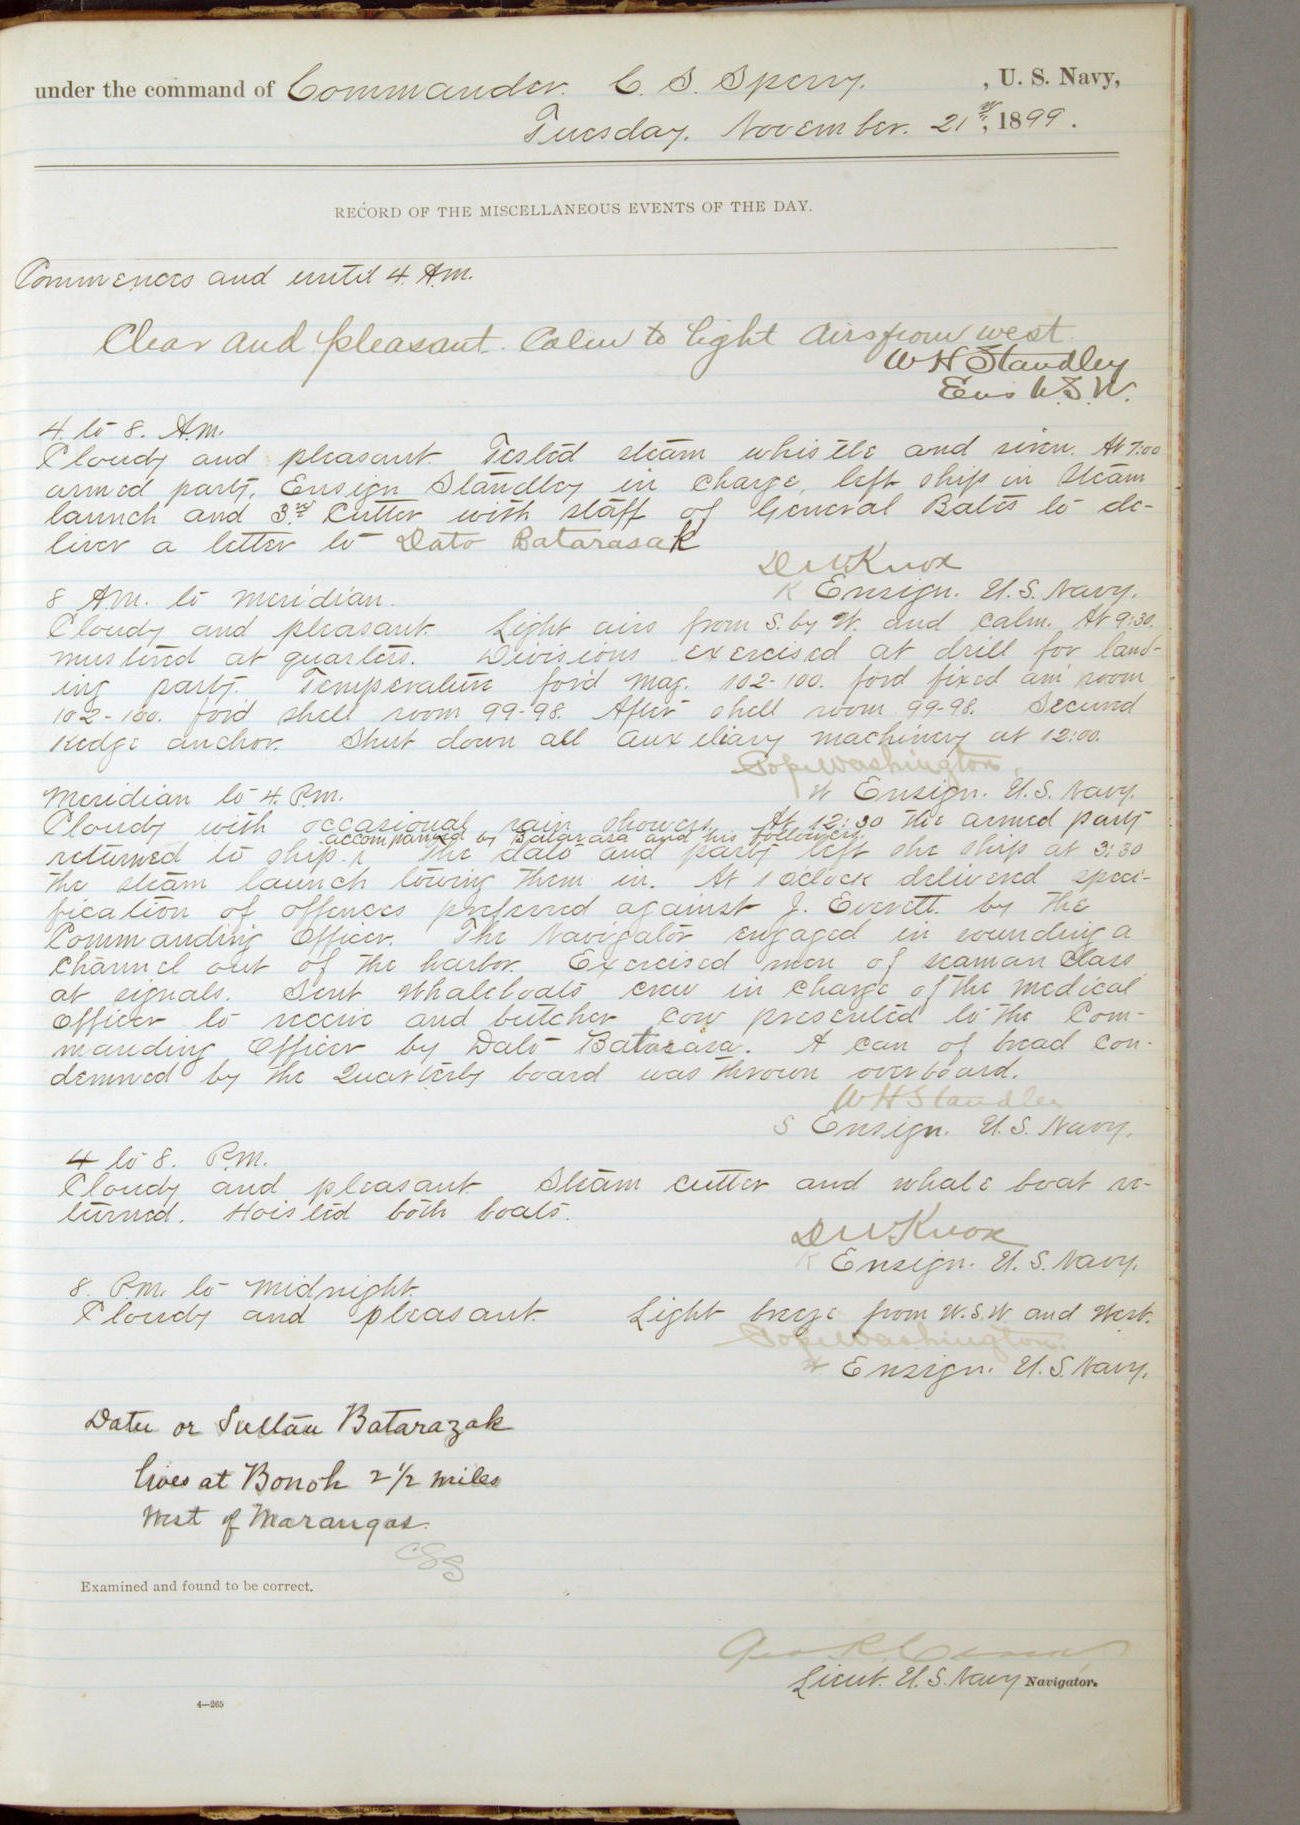 under the command of Commander. C. S. Sperry. , U. S. Navy,
Tuesday. November. 21st, 1899.
RECORD OF THE MISCELLANEOUS EVENTS OF THE DAY.
Commences and until 4. A.M.
Clear and pleasant. Calm to light airs from west
W H Standley
Ens U.S.N.
4. to 8. A.M.
Cloudy and pleasant. Tested steam whistle and siren. At 7:00
armed party, Ensign Standley in charge, left ship in steam
launch and 3rd cutter with staff of General Bates to de-
liver a letter to Dato Batarasak
D W Knox
K Ensign. U.S. Navy.
8 A.M. to meridian.
Cloudy and pleasant. Light airs from S. by W. and calm. At 9:30.
mustered at quarters. Divisions exercised at drill for land-
ing party. Temperature for'd mag. 102-100. for'd fixed am' room
102-100. for'd shell room 99-98. After shell room 99-98. Secured
kedge anchor. Shut down all auxiliary machinery at 12:00.
Pope Washington.
W Ensign. U.S. Navy.
Meridian to 4. P.M.
Cloudy with occasional rain showers. At 12:30 the armed party
accompanied by Batarasa and his followers.
returned to ship. The dato and party left the ship at 3:30
the steam launch towing them in. At 1 o'clock delivered speci-
fication of offences preferred against J. Everett. by the
Commanding Officer. The Navigator engaged in sounding a
channel out of the harbor. Exercised men of seaman class
at signals. Sent whaleboats crew in charge of the medical
officer to receive and butcher cow presented to the Com-
manding Officer by Dato Batarasa. A can of bread con-
demned by the Quarterly board was thrown overboard.
W H Standley
S Ensign. U.S. Navy.
4 to 8. P.M.
Cloudy and pleasant. Steam cutter and whale boat re-
turned. Hoisted both boats.
D W Knox
K Ensign. U.S. Navy.
8. P.M. to midnight.
Cloudy and pleasant. Light breeze from W.S.W and West.
Pope Washington.
W Ensign. U.S. Navy.
Datu or Sultan Batarazak
lives at Bonoh 2 1/2 miles
West of Marangas.
CSS
Examined and found to be correct.
Lieut. U.S. Navy Navigator.
4—265